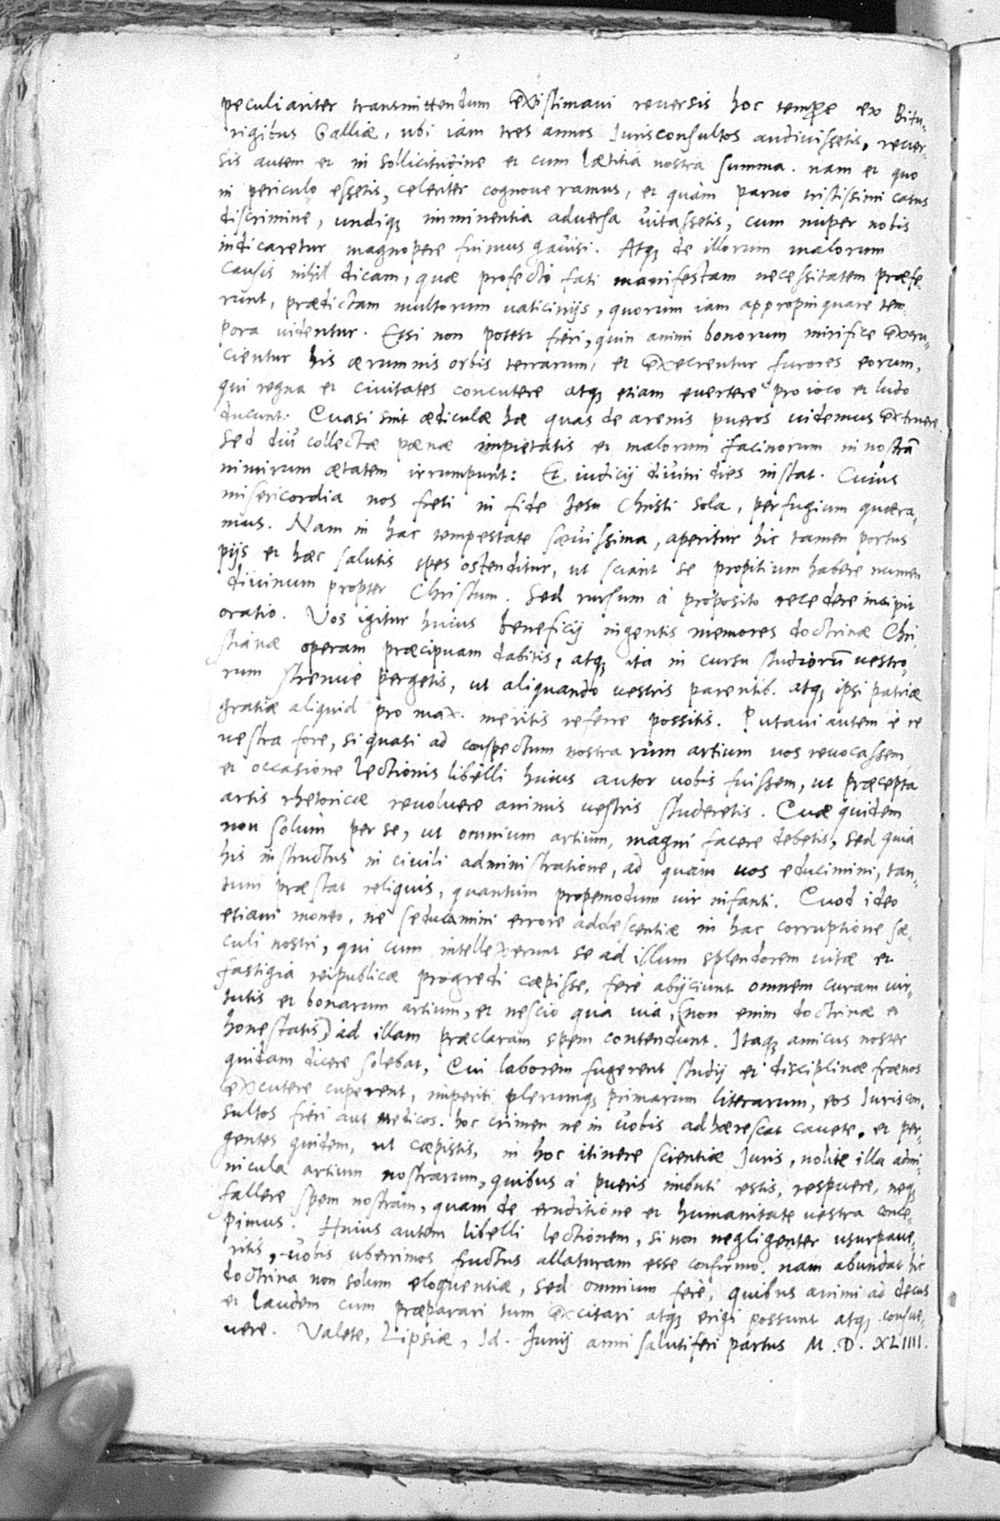 peculiariter transmittendum existimaui reuersis hoc tempore ex Bitu-
rigibus Galliæ, ubi iam tres annos Iurisconsultos audiuissetis, reuer-
sis autem et in sollicitudine et cum lætitia nostra summa. nam et quo
in periculo essetis, celeriter cognoueramus, et quàm paruo tristissimi casus
discrimine, undiq; imminentia aduersa vitassetis, cum nuper nobis
indicaretur magnopere fuimus gauisi. Atq; de illorum malorum
causis nihil dicam, quæ profectò fati manifestam necessitatem præfe-
runt, prædictam multorum uaticinijs, quorum iam appropinquare tem
pora uidentur. Etsi non potest fieri, quin animi bonorum mirifice excru-
cientur his ærumnis orbis terrarum, et execrentur furores eorum,
qui regna et ciuitates concutere atq; etiam euertere pro ioco et ludo
ducunt. Quasi sint ædiculæ hæ quas de arenis pueros uidemus extruere.
Sed diu collectæ pœnæ impietatis et malorum facinorum in nostrā
nimirum ætatem irrumpunt: Et iudicij diuini dies instat. Cuius
misericordia nos freti in fide Iesu Christi sola, perfugium quæra-
mus. Nam in hac tempestate sæuissima, aperitur hic tamen portus
pijs et hæc salutis spes ostenditur, ut sciant se propitium habere numen
diuinum propter Christum. Sed rursum à proposito recedere incipit
oratio. Vos igitur huius beneficij ingentis memores doctrinæ Chri
stianæ operam præcipuam dabitis, atq; ita in cursu studiorū uestro-
rum strenuè pergetis, ut aliquando uestris parentib. atq; ipsi patriæ
gratiæ aliquid pro max. meritis referre possitis. Putaui autem è re
uestra fore, si quasi ad conspectum nostrarum artium uos reuocassem
et occasione lectionis libelli huius autor uobis fuissem, ut præcepta
artis rhetoricæ reuoluere animis uestris studeretis. Quæ quidem
non solùm per se, ut omnium artium, magni facere debetis, sed quia
his instructus in ciuili administratione, ad quam uos educimini, tan-
tum præstat reliquis, quantum propemodum uir infanti. Quod ideo
etiam moneo, ne seducamini errore adolescentiæ in hac corruptione sæ-
culi nostri, qui cum intellexerunt se ad illum splendorem uitæ et
fastigia reipublicæ progredi cœpisse, ferè abijciunt omnem curam uir-
tutis et bonarum artium, et nescio qua uia, (non enim doctrinæ et
honestatis) ad illam præclaram spem contendunt. Itaq; amicus noster
quidam dicere solebat, Qui laborem fugerent studij et disciplinæ frænos
excutere cuperent, imperiti plerumq; primarum literarum, eos Iuriscon-
sultos fieri aut medicos. hoc crimen ne in uobis adhærescat cauete. et per-
gentes quidem, ut cœpistis, in hoc itinere scientiæ Iuris, nolite illa admi-
nicula artium nostrarum, quibus à pueris imbuti estis, respuere, neq;
fallere spem nostram, quam de eruditione et humanitate uestra conce-
pimus. Huius autem libelli lectionem, si non negligenter usurpaue-
ritis, uobis uberrimos fructus allaturam esse confirmo. nam abundat hic
doctrina non solum eloquentiæ, sed omnium ferè, quibus animi ad decus
et laudem cum præparari tum excitari atq; erigi possunt atq; consue-
uere. Valete, Lipsiæ, Id. Junij anni salutiferi partus M. D. XLIIII.